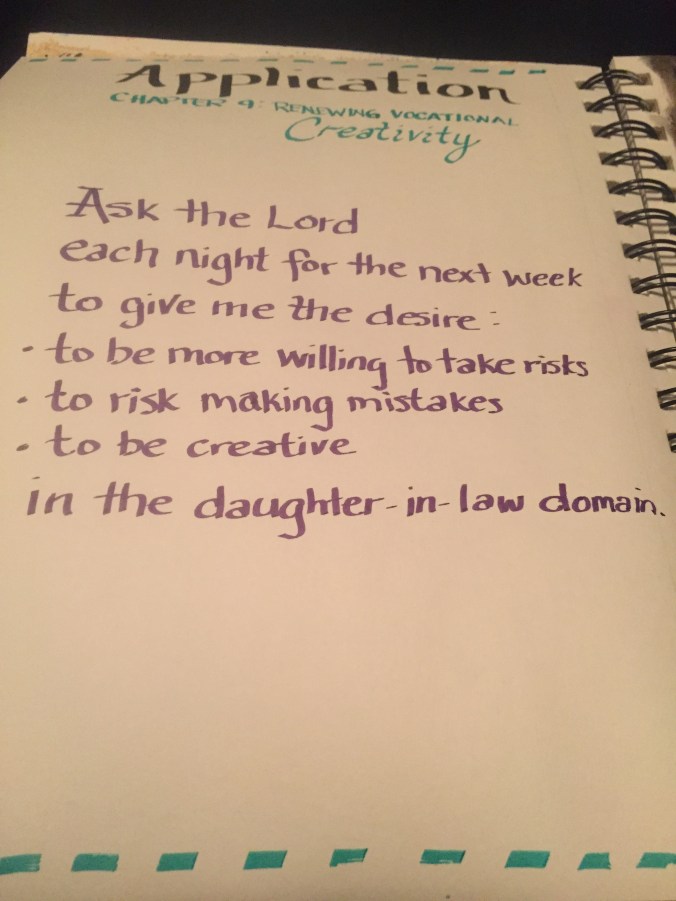 Application
CHAPTER 9: RENEWING VOCATIONAL
Creativity
Ask the Lord
each night for the next week
to give me the desire:
· to be more willing to take risks
· to risk making mistakes
· to be creative
in the daughter-in-law domain.